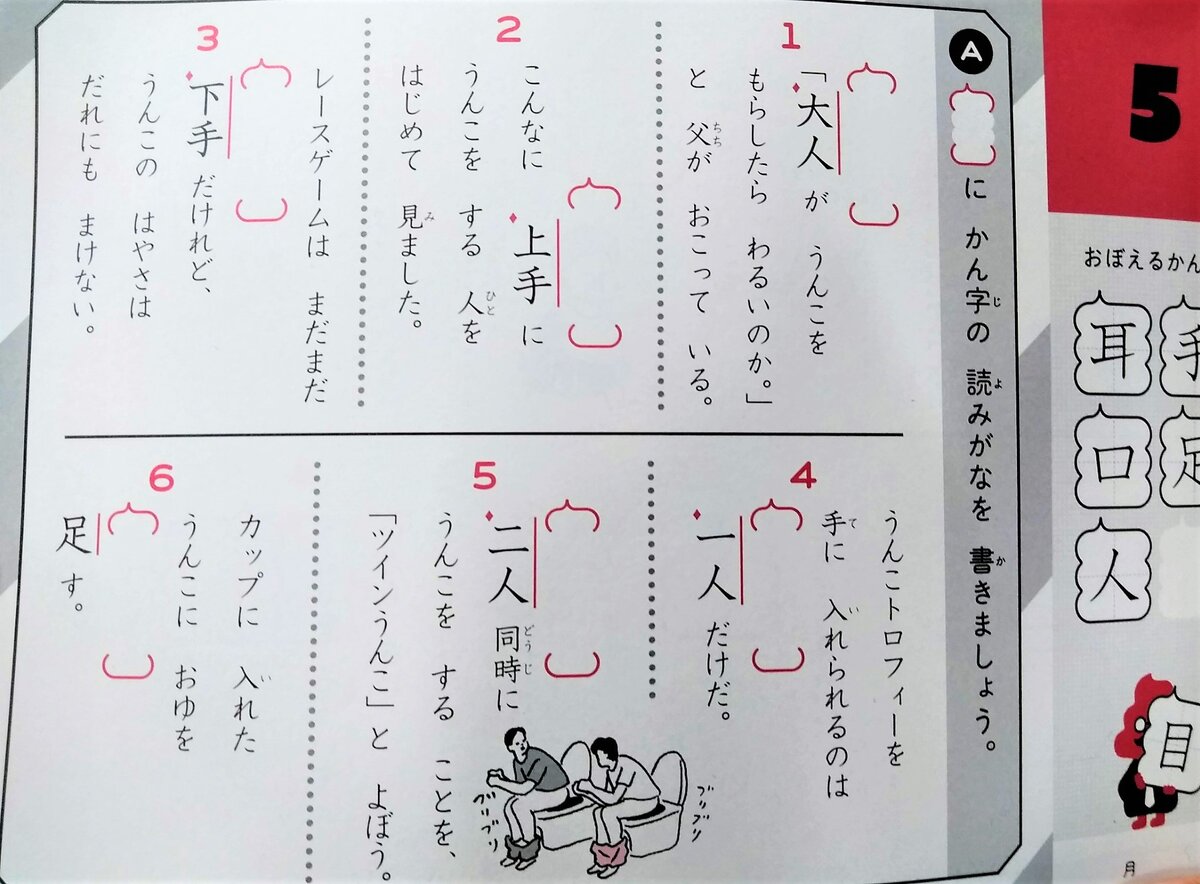 5
おぼえるかん
手
足
耳
口
人
目
月
A
に かん字の 読みがなを 書きましょう。
じ
よ
か
1
「大人が うんこを
もらしたら わるいのか。」
と 父が おこって いる。
ちち
2
こんなに 上手に
うんこを する 人を
ひと
はじめて 見ました。
み
3
レースゲームは まだまだ
下手だけれど、
うんこの はやさは
だれにも まけない。
4
うんこトロフィーを
手に 入れられるのは
て
い
一人だけだ。
5
二人同時に
どうじ
うんこを する ことを、
「ツインうんこ」と よぼう。
ブリブリ
ブリブリ
6
カップに 入れた
い
うんこに おゆを
足す。